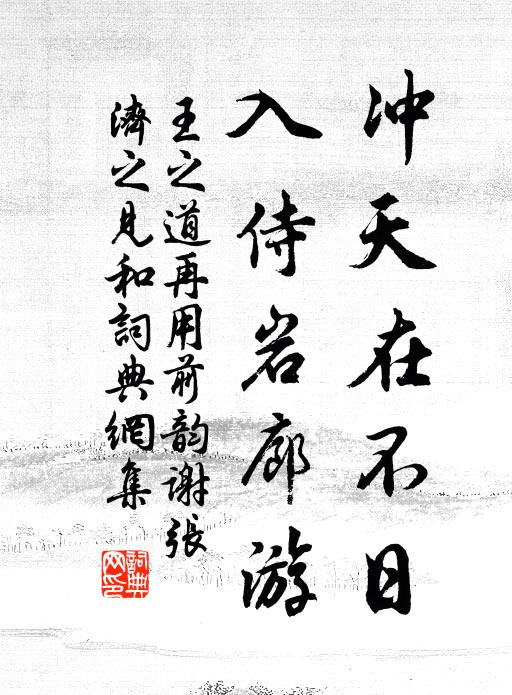 冲天在不日
入侍岩廊游
王之道再用前韵謝張
濟之見和詞典網集
詞典
网印